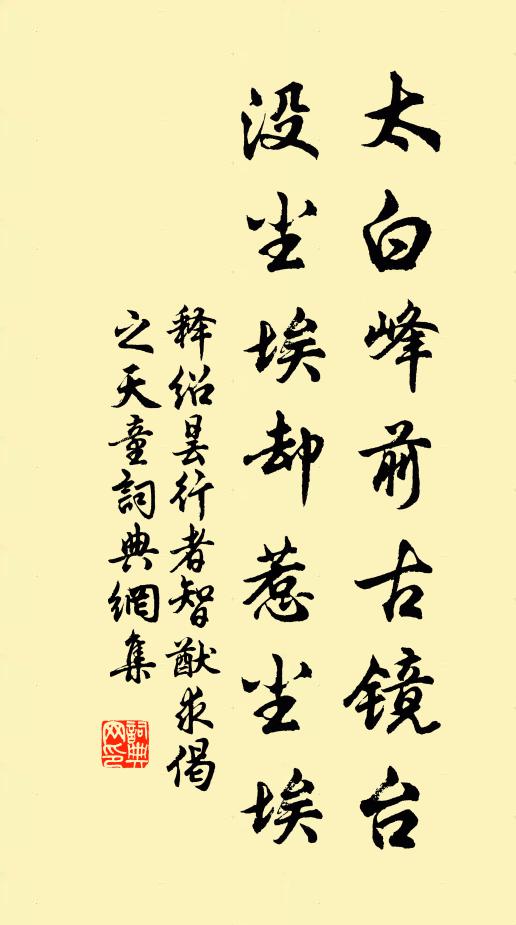 太白峰前古镜台
没尘埃却惹尘埃
释绍昙行者智猷求偈
之天童詞典網集
詞典網印